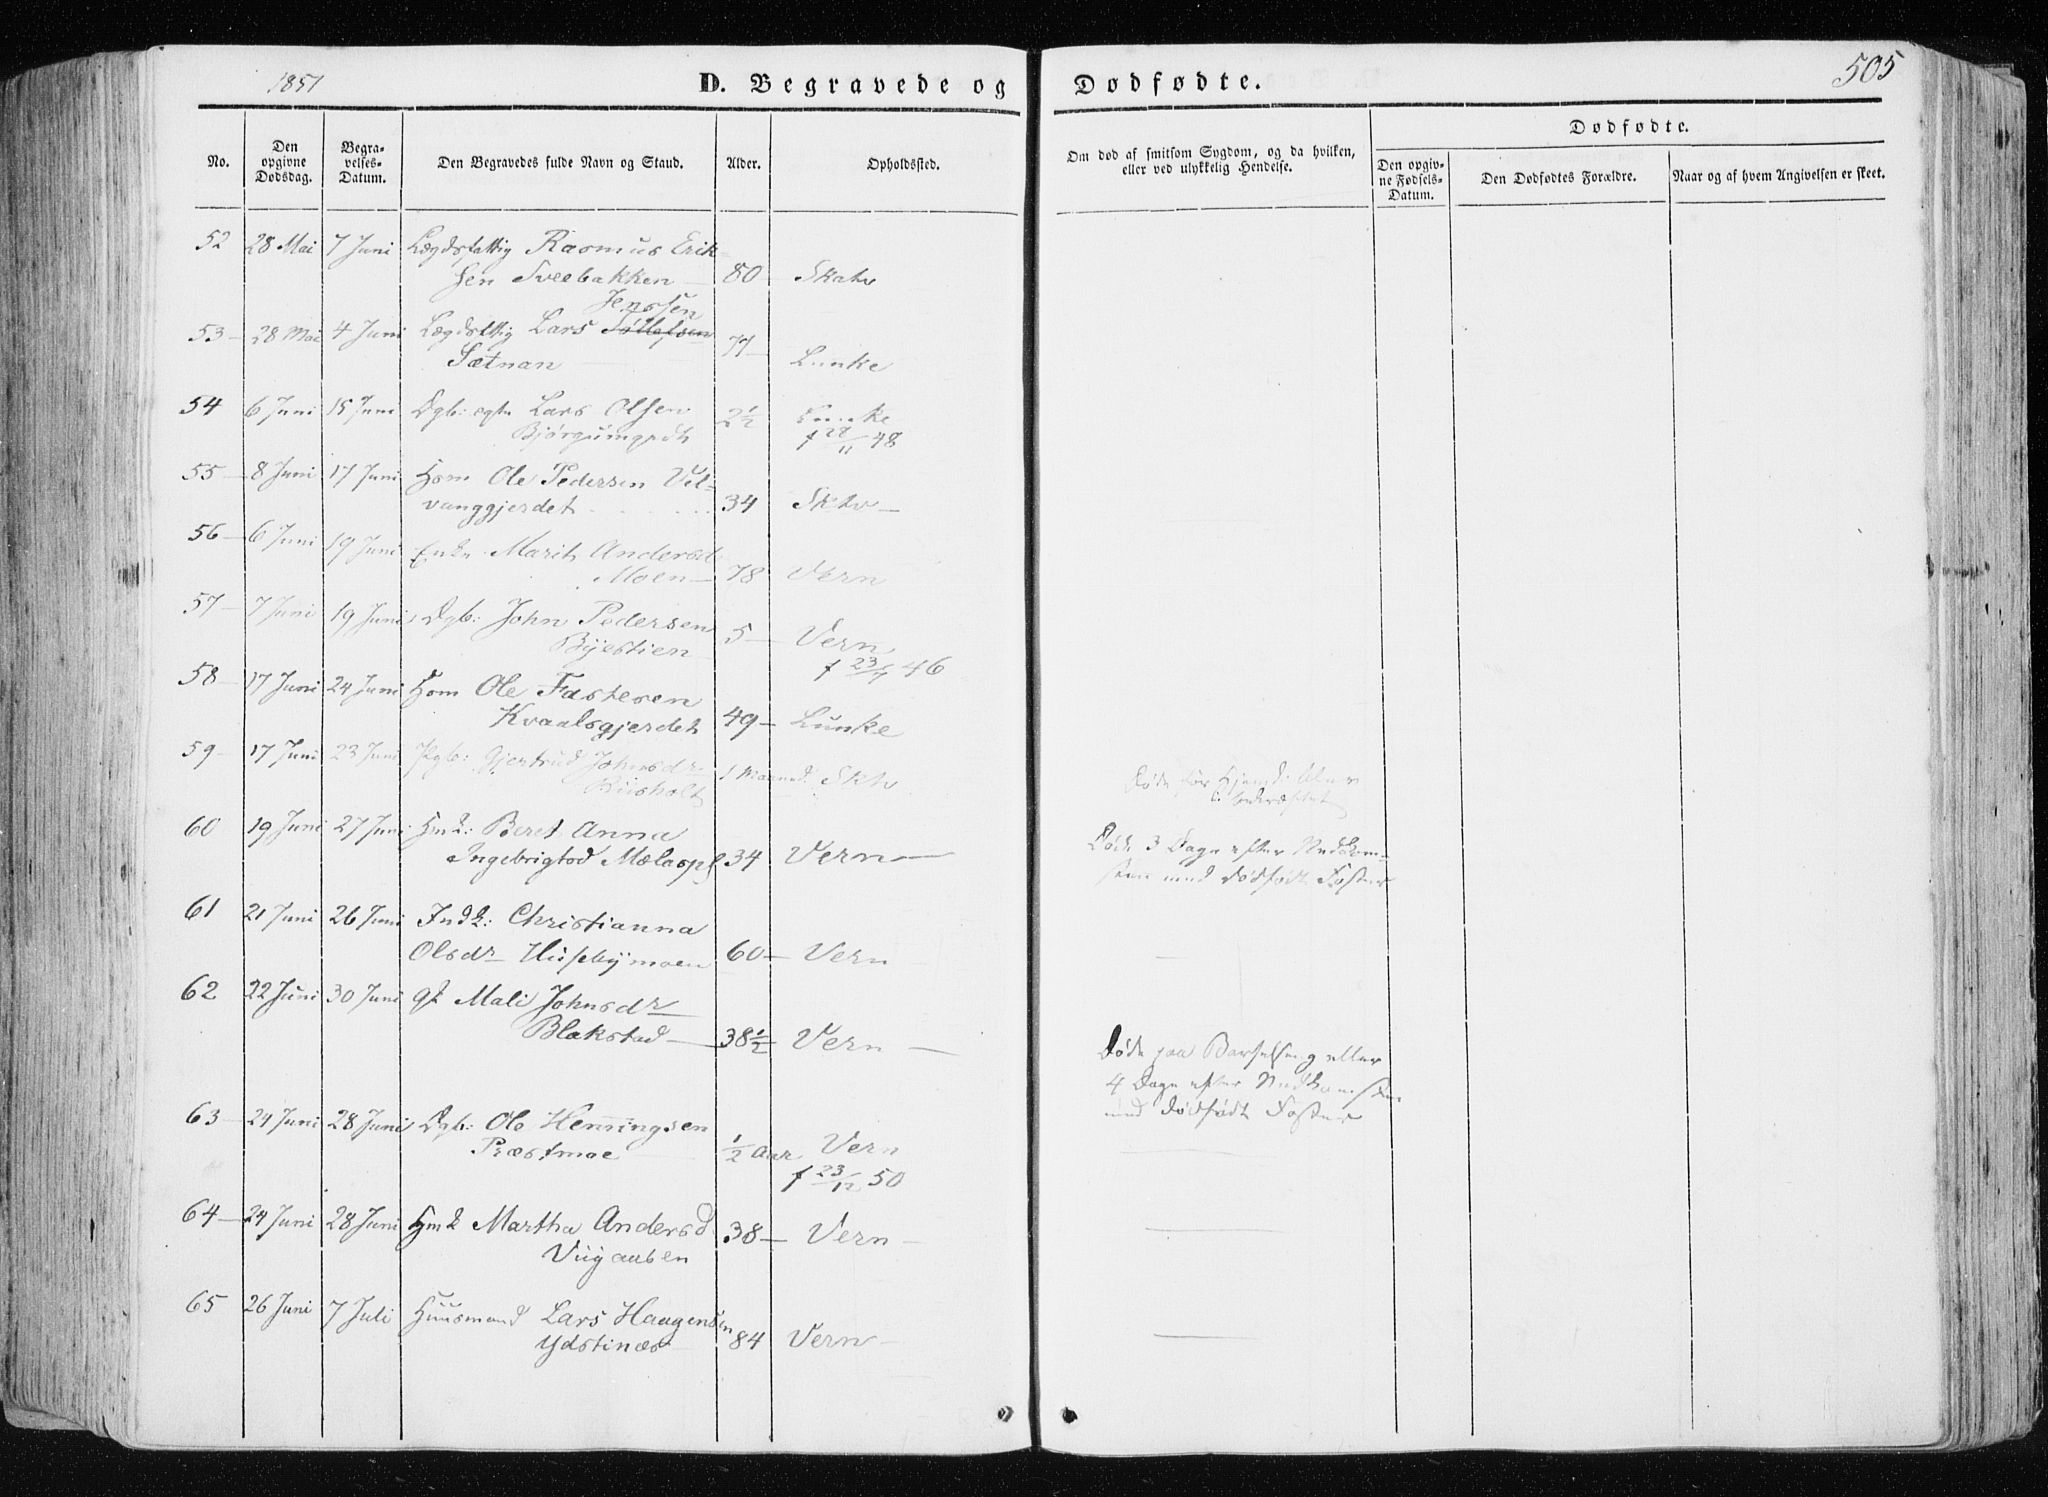 1851
D. Begravede og Dødfødte.
505
No.
Den opgivne Dødsdag.
Begravelses-Datum.
Den Begravedes fulde Navn og Stand.
Alder.
Opholdssted.
Om død af smitsom Sygdom, og da hvilken,
eller ved ulykkelig Hendelse.
Dødfødte.
Den opgivne Fødsels-Datum.
Den Dødfødtes Forældre.
Naar og af hvem Angivelsen er skeet.
52 28 Mai 7 Juni Lægdsfattig Rasmus Erik
sen Sveebakken 80 Skatv
Jenssen
53 28 Mai 4 Juni Lars
Sætnan 77 Lunke
54 6 Juni 15 Juni Dgb: Lars Olsen 2½ Lunke
f 28/11 48
55 8 Juni 17 Juni Hsm Ole Pedersen Vel-
vanggjerdet 34 Sktv
56 6 Juni 19 Juni Enke Marith Andersd
Moen 78 Vern
57 7 Juni 19 Juni Dgb: John Pedersen 5 Vern
f 23/7 46
58 17 Juni 24 Juni Hsm Ole Fastesen
Kvaalsgjerdet 49 Lunke
59 17 Juni 23 Juni Pgb: Gjertrud Johnsdr 1 Maaned Sktv
Døde før Hjemd:
60 19 Juni 27 Juni Hmk: Beret Anna
Ingebrigtsd Mælaspl 34 Vern
Døde 3 Dage efter Nedkom-
sten med dødfødt Foster
61 21 Juni 26 Juni Indk: Christianna
Olsdr Husebymoen 60 Vern
62 22 Juni 30 Juni Mali Johnsdr
Blakstad 38½ Vern
Døde paa Barselseng eller
4 Dage efter Nedkomsten
med dødfødt Foster
63 24 Juni 28 Juni Dgb: Ole Henningsen
Præstmoe ½ Aar Vern
f 23/12 50
64 24 Juni 28 Juni Hmk Martha Andersd 38 Vern
65 26 Juni 7 Juli Huusmand Lars Haagensen
Ydstinæs 84 Vern